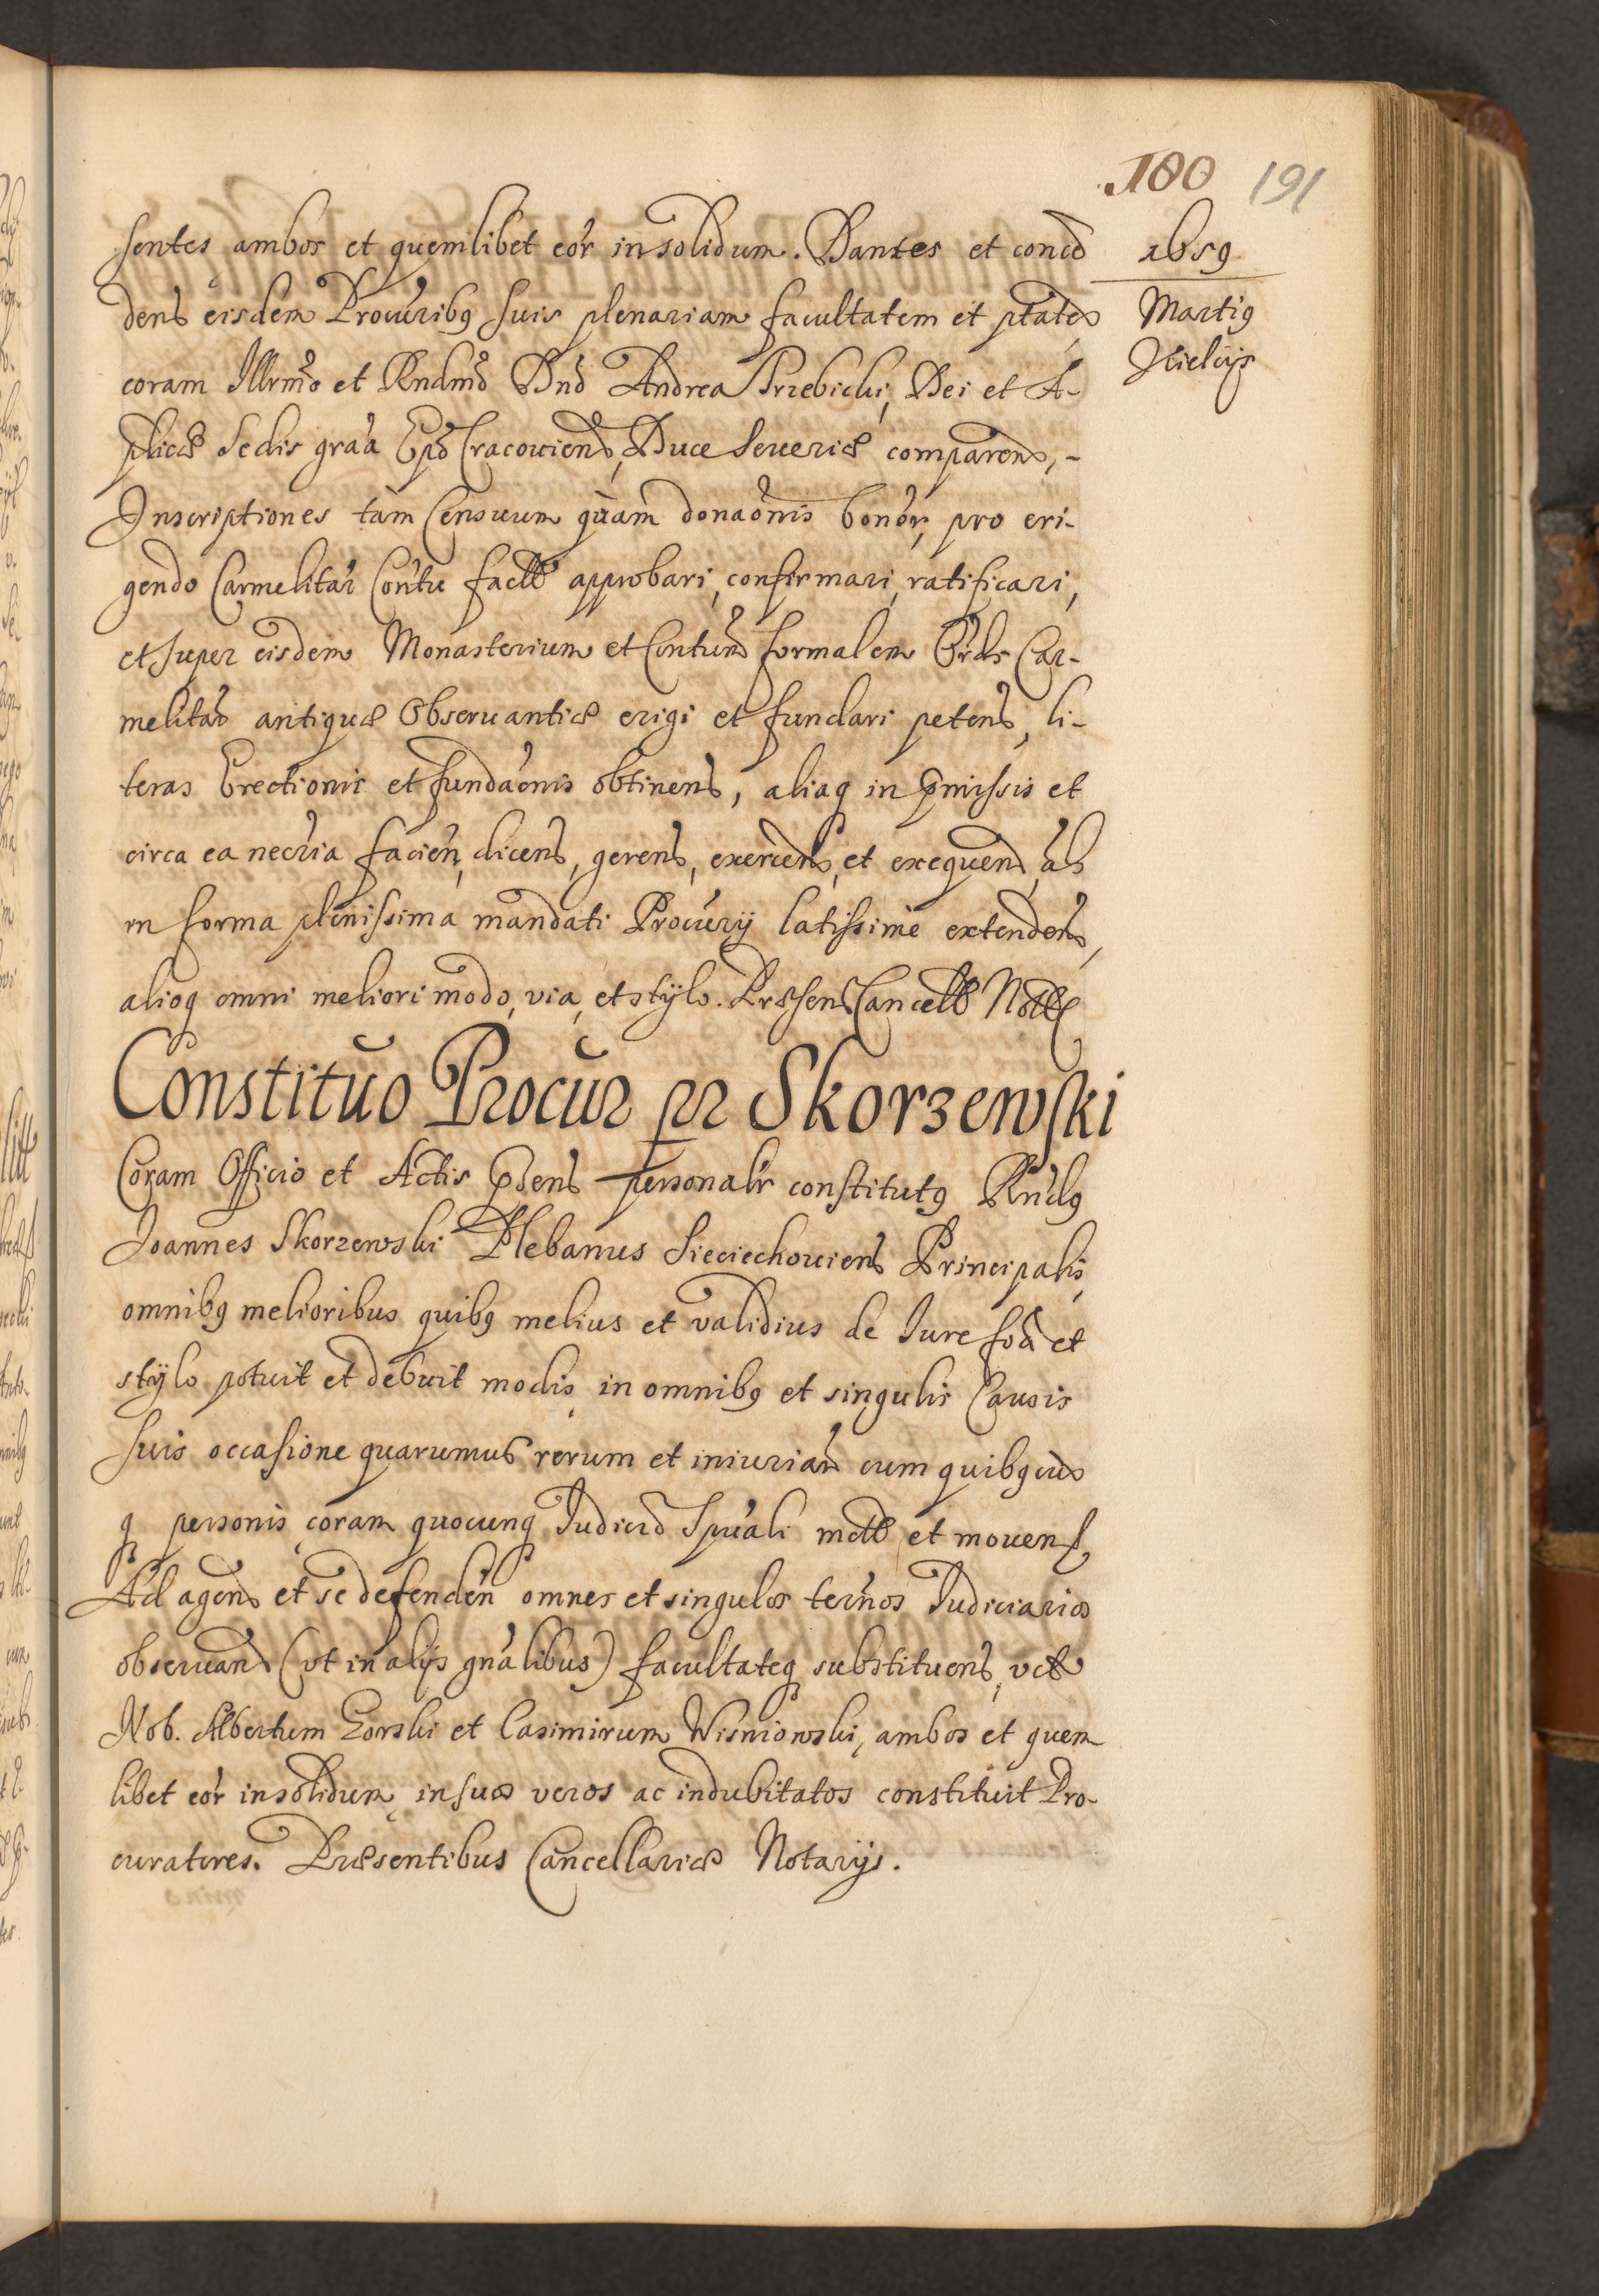 100 191
sentes ambos et quemlibet eor̃ in solidum. Dantes et conced
1659
dens eisdem Procuribq suis plenariam facultatem et ptatem
Martiq
Kielcijs
coram Illrmo et Rndmo Dno Andrea Trzebicki, Dei et A-
plicæ Sedis gra͠a Epo Cracouiens, Duce Seueriæ comparend, -
Inscriptiones tàm Censuum quàm donao͠nis bonor, pro eri-
gendo Carmelitar Co͠ntu factas approbari, confirmari, ratificari,
et super eisdem Monasterium et Contum formalem Ordis Car-
melitar antiquæ Obseruantiæ erigi et fundari petend, li-
teras Erectionis et fundao͠nis obtinend, aliaq in pmissis et
circa ea necria facien, dicend, gerend, exercend, et exequend, ac
in forma plenissima mandati Procurij latissimè extendend,
alioq omni meliori modo, via, et stylo. Præsent Cancell Nott
Constituo Procur pr Skorzewski
Coram Officio et Actis pdens personalr constitutq Rndq
Joannes Skorzewski Plebanus Sieciechouiens Principalis,
omnibq melioribus quibq melius et validius de Jure foã et
stylo potuit et debuit modis, in omnibq et singulis Causis
suis occasione quarumuis rerum et iniuriar cum quibqcun
q personis, coram quocunq Judicio Spuali motis et mouend,
Ad agend et se defenden omnes et singulos termos Judiciarios
obseruand (vt in alijs gnalibus) facultateq substituend,
Nob. Albertum Gorski et Casimirum Wisniowski, ambos et quem
libet eor in solidum, in suos veros ac indubitatos constituit Pro-
curatores. Præsentibus Cancellariæ Notarijs.